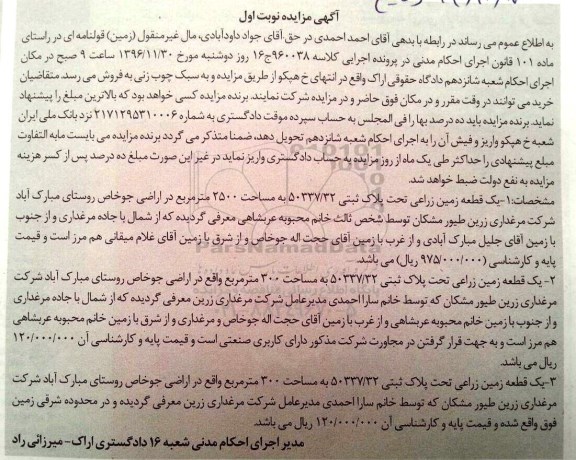 آگهی مزایده نوبت اول
به اطلاع عموم می رساند در رابطه با بدهی آقای احمد احمدی در حق آقای جواد داودآبادی، مال غیرمنقول (زمین) قولنامه ای در راستای
ماده ۱۰۱ قانون اجرای احکام مدنی در پرونده اجرایی کلاسه ۹۶۰۰۳۸ج۱۶ روز دوشنبه مورخ ۱۳۹۶/۱۱/۳۰ ساعت ۹ صبح در مکان
اجرای احکام شعبه شانزدهم دادگاه حقوقی اراک واقع در انتهای خ هپکو از طریق مزایده و به سبک چوب زنی به فروش می رسد. متقاضیان
خرید می توانند در وقت مقرر و در مکان فوق حاضر و در مزایده شرکت نمایند. برنده مزایده کسی خواهد بود که بالاترین مبلغ را پیشنهاد
نماید. برنده مزایده باید ده درصد بها را فی المجلس به حساب سپرده موقت دادگستری به شماره ۲۱۷۱۲۹۵۳۱۰۰۰۶ نزد بانک ملی ایران
شعبه خ هپکو واریز و فیش آن را به اجرای احکام شعبه شانزدهم تحویل دهد، ضمنا متذکر می گردد برنده مزایده می بایست مابه التفاوت
مبلغ پیشنهادی را حداکثر طی یک ماه از روز مزایده به حساب دادگستری واریز نماید در غیر این صورت مبلغ ده درصد پس از کسر هزینه
مزایده به نفع دولت ضبط خواهد شد.
مشخصات: ۱-یک قطعه زمین زراعی تحت پلاک ثبتی ۵۰۳۳۷/۳۲ به مساحت ۲۵۰۰ مترمربع در اراضی جوخاص روستای مبارک آباد
شرکت مرغداری زرین طیور مشکان توسط شخص ثالث خانم محبوبه عربشاهی معرفی گردیده که از شمال با جاده مرغداری و از جنوب
با زمین آقای جلیل مبارک آبادی و از غرب با زمین آقای حجت اله جوخاص و از شرق با زمین آقای غلام میقانی هم مرز است و قیمت
پایه و کارشناسی (۹۷۵/۰۰۰/۰۰۰ ریال) می باشد.
۲- یک قطعه زمین زراعی تحت پلاک ثبتی ۵۰۳۳۷/۳۲ به مساحت ۳۰۰ مترمربع واقع در اراضی جوخاص روستای مبارک آباد شرکت
مرغداری زرین طیور مشکان که توسط خانم سارا احمدی مدیرعامل شرکت مرغداری زرین معرفی گردیده که از شمال با جاده مرغداری
و از جنوب با زمین خانم محبوبه عربشاهی و از غرب با زمین آقای حجت اله جوخاص و مرغداری و از شرق با زمین خانم محبوبه عربشاهی
هم مرز است و به جهت قرار گرفتن در مجاورت شرکت مذکور دارای کاربری صنعتی است و قیمت پایه و کارشناسی آن ۱۲۰/۰۰۰/۰۰۰
ریال می باشد.
۳-یک قطعه زمین زراعی تحت پلاک ثبتی ۵۰۳۳۷/۳۲ به مساحت ۳۰۰ مترمربع واقع در اراضی جوخاص روستای مبارک آباد شرکت
مرغداری زرین طیور مشکان که توسط خانم سارا احمدی مدیرعامل شرکت مرغداری زرین معرفی گردیده و در محدوده شرقی زمین
فوق واقع شده و قیمت پایه و کارشناسی آن ۱۲۰/۰۰۰/۰۰۰ ریال می باشد.
مدیر اجرای احکام مدنی شعبه ۱۶ دادگستری اراک- میرزائی راد
ParsNamadData